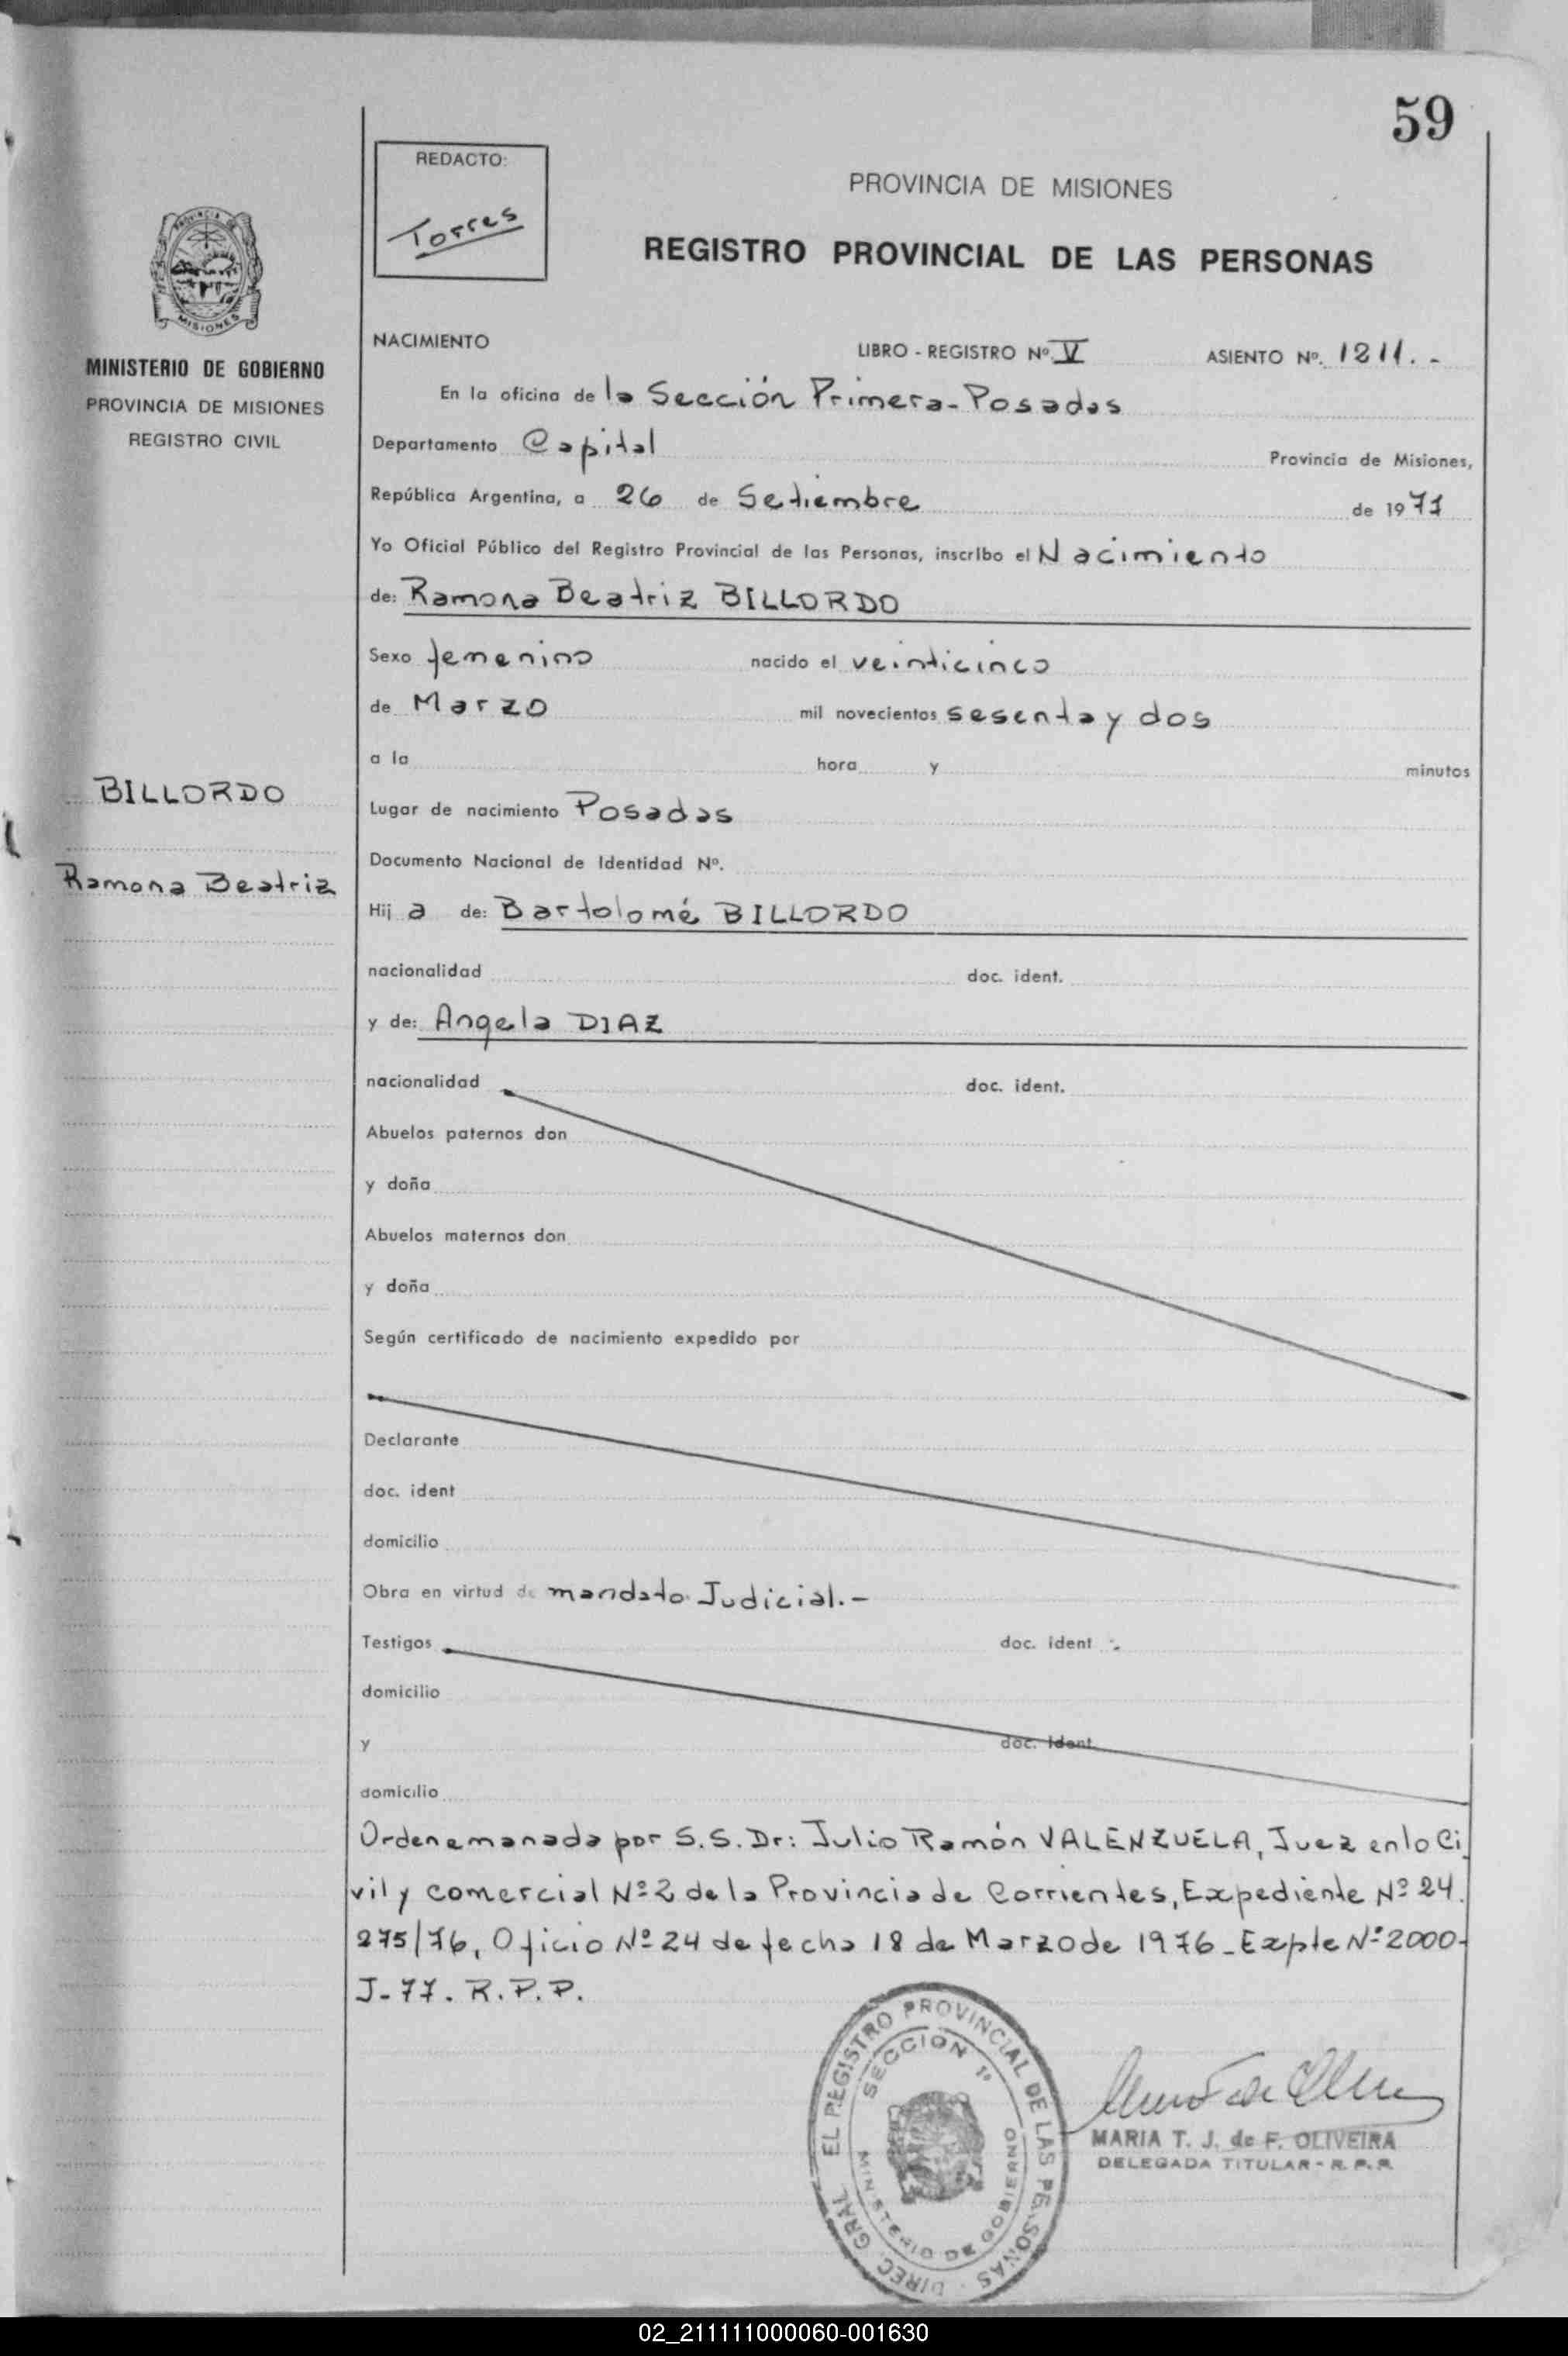 59
REDACTO:
Torres
PROVINCIA DE MISIONES
REGISTRO PROVINCIAL DE LAS PERSONAS
PROVINCIA DE
MISIONES
MINISTERIO DE GOBIERNO
PROVINCIA DE MISIONES
REGISTRO CIVIL
NACIMIENTO LIBRO - REGISTRO Nº V ASIENTO Nº. 1211. -
En la oficina de la Sección Primera - Posadas
Departamento Capital Provincia de Misiones,
República Argentina, a 26 de Setiembre de 1977
Yo Oficial Público del Registro Provincial de las Personas, inscribo el Nacimiento
de: Ramona Beatriz BILLORDO
Sexo femenino nacido el veinticinco
de Marzo mil novecientos sesenta y dos
a la hora y minutos
BILLORDO
Ramona Beatriz
Lugar de nacimiento Posadas
Documento Nacional de Identidad Nº.
Hij a de: Bartolomé BILLORDO
nacionalidad doc. ident.
y de: Angela DIAZ
nacionalidad doc. ident.
Abuelos paternos don
y doña
Abuelos maternos don
y doña
Según certificado de nacimiento expedido por
Declarante
doc. ident
domicilio
Obra en virtud de mandato Judicial.-
Testigos doc. ident
domicilio
y doc. ident
domicilio
Orden emanada por S.S. Dr: Julio Ramón VALENZUELA, Juez en lo Ci
vil y comercial Nº 2 de la Provincia de Corrientes, Expediente Nº 24.
275/76, Oficio Nº 24 de fecha 18 de Marzo de 1976 - Expte Nº 2000-
J-77. R.P.P.
DIREC. GRAL. EL REGISTRO PROVINCIAL DE LAS PERSONAS
SECCION 1ª
MINISTERIO DE GOBIERNO
MARIA T. J. de F. OLIVEIRA
DELEGADA TITULAR - R. P. P.
02_211111000060-001630